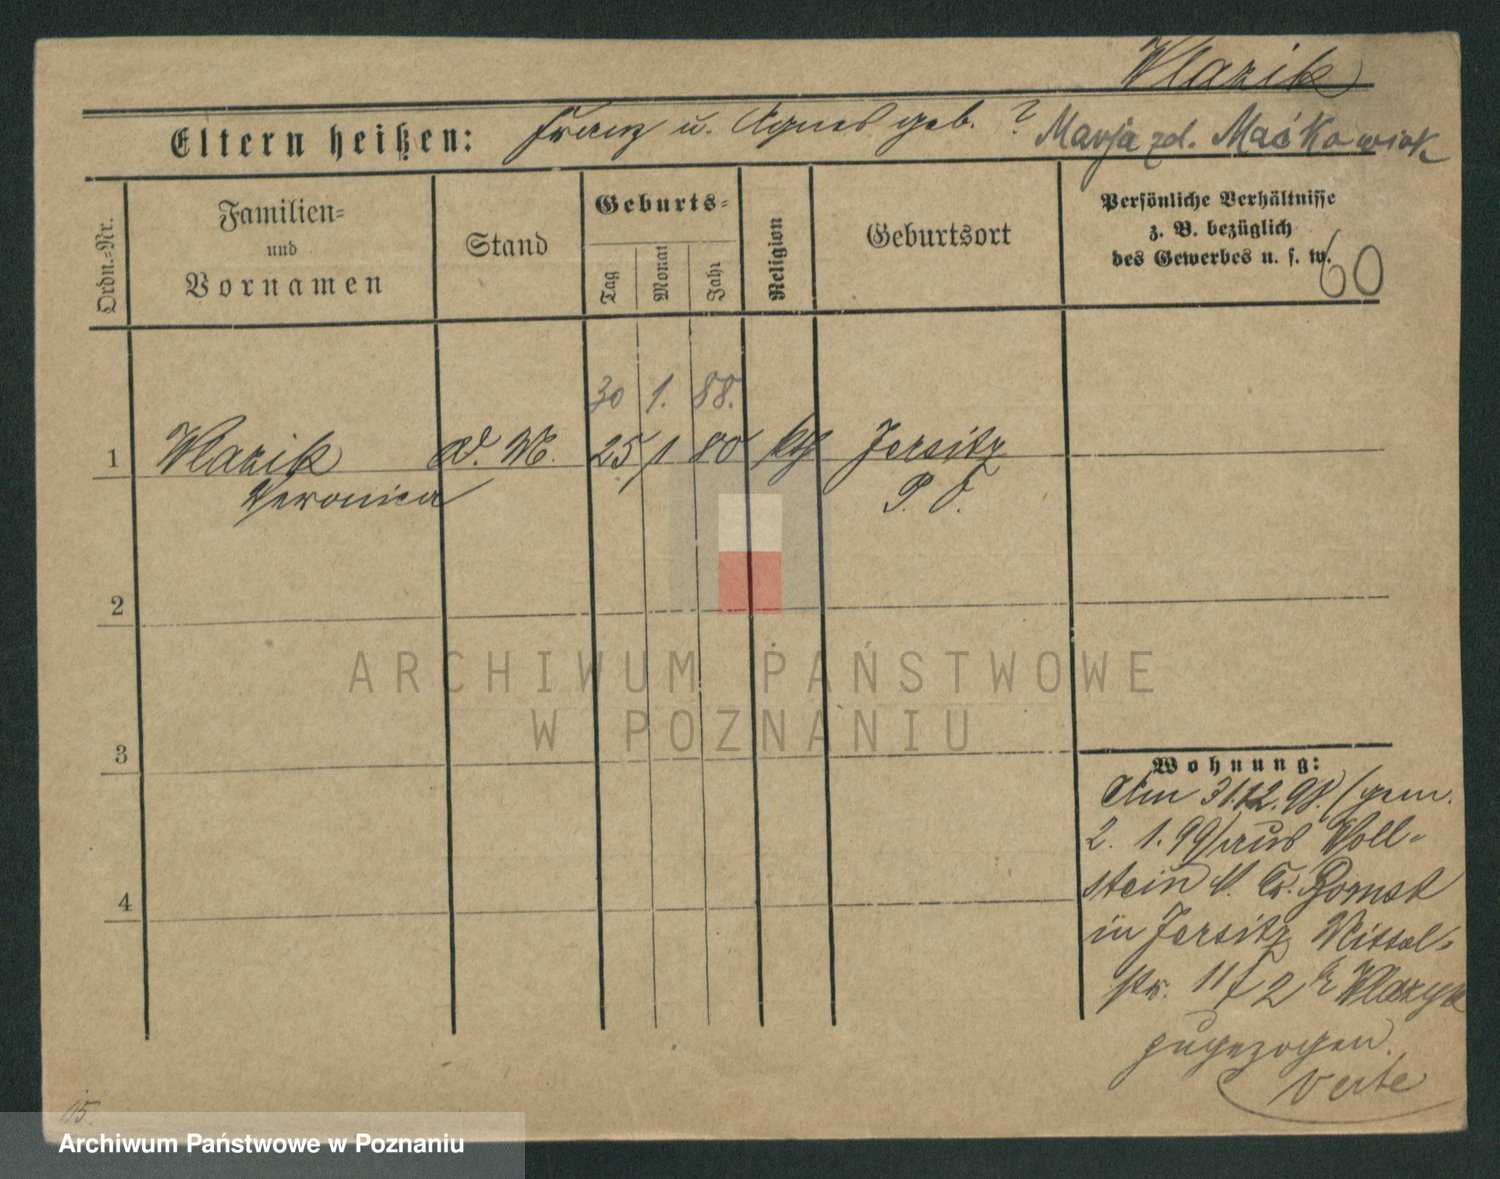 Wlazik
Eltern heißen: Franz u. Agnes geb. ? Marja zd. Maćkowiak
Ordn.=Nr.
Familien=
und
Vornamen
Stand
Geburts=
Tag
Monat
Jahr
Religion
Geburtsort
Persönliche Verhältnisse
z. B. bezüglich
des Gewerbes u. s. w.
60
30 1. 88.
1 Wlazik D. M. 25 1 80 kth Jersitz
Veronica P. O.
2
3
4
Wohnung:
Am 31.12.98. (gem.
2. 1. 99) aus Woll=
stein Kr. Bomst
in Jersitz
str. 11 b Wlazyk
zugezogen.
verte
115.
ARCHIWUM PAŃSTWOWE
W POZNANIU
Archiwum Państwowe w Poznaniu